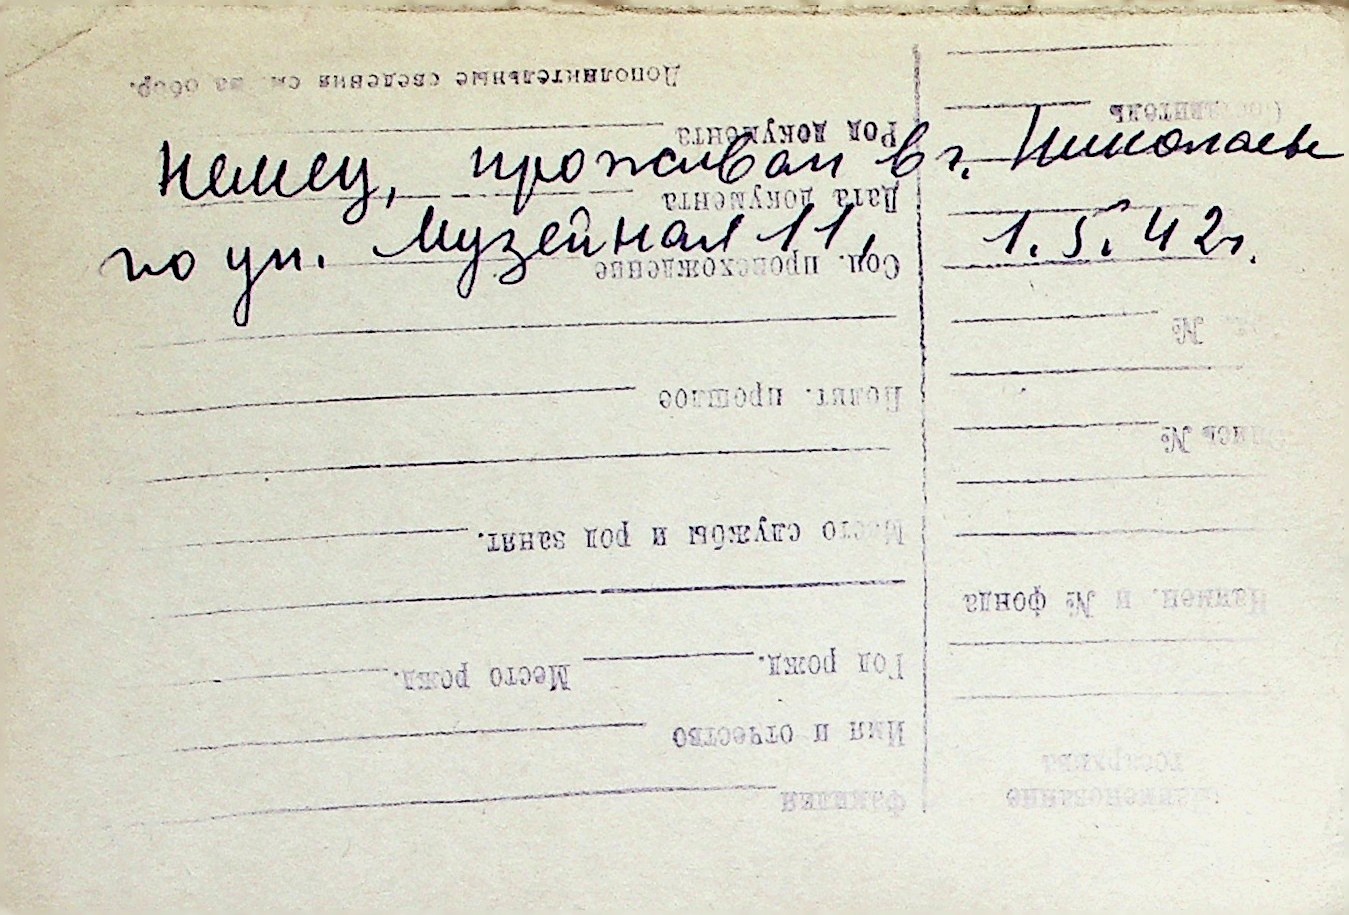 Немец, проживал в г. Николаеве
по ул. Музейная 11, 1.5.42г.
Фамилия
Имя и отчество
Год рожд. Место рожд.
Место службы и род занят.
Полит. прошлое
Соц. происхождение
Дата документа
Род документа
Дополнительные сведения см. на обор.
Наименование
госархива
Наимен. и № фонда
Опись №
№
Составитель